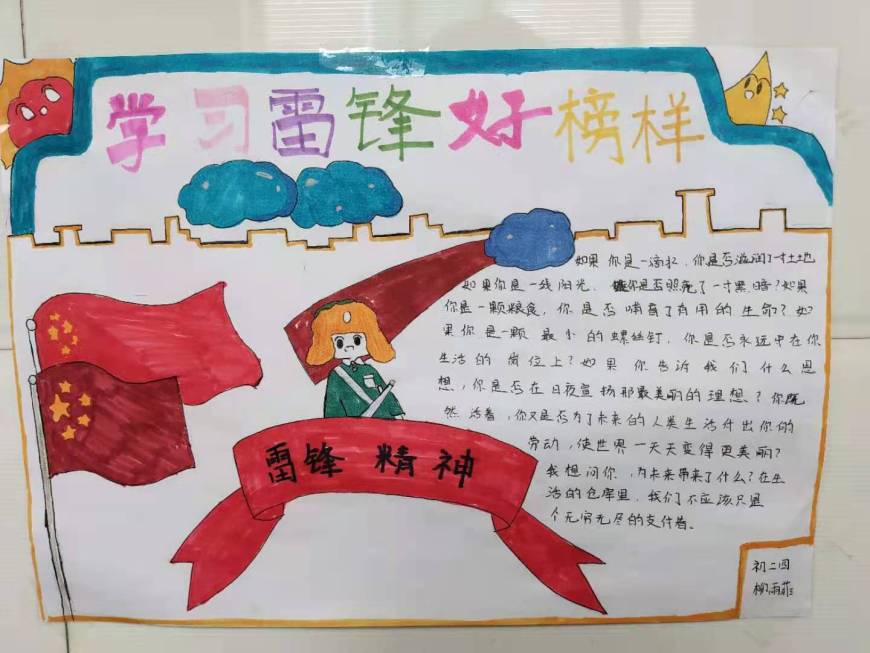 学习雷锋好榜样
如果你是一滴水,你是否滋润了一寸土地
如果你是一线阳光,你是否照亮了一寸黑暗?如果
你是一颗粮食,你是否哺育了有用的生命?如
果你是一颗最小的螺丝钉,你是否永远守在你
生活的岗位上?如果你告诉我们什么思
想,你是否在日夜宣扬那最美丽的理想?你既
然活着,你又是否为了未来的人类生活付出你的
劳动,使世界一天天变得更美丽?
我想问你,为未来带来了什么?在生
活的仓库里,我们不应该只是
个无穷无尽的支付者。
雷锋精神
初二四
柳雨菲